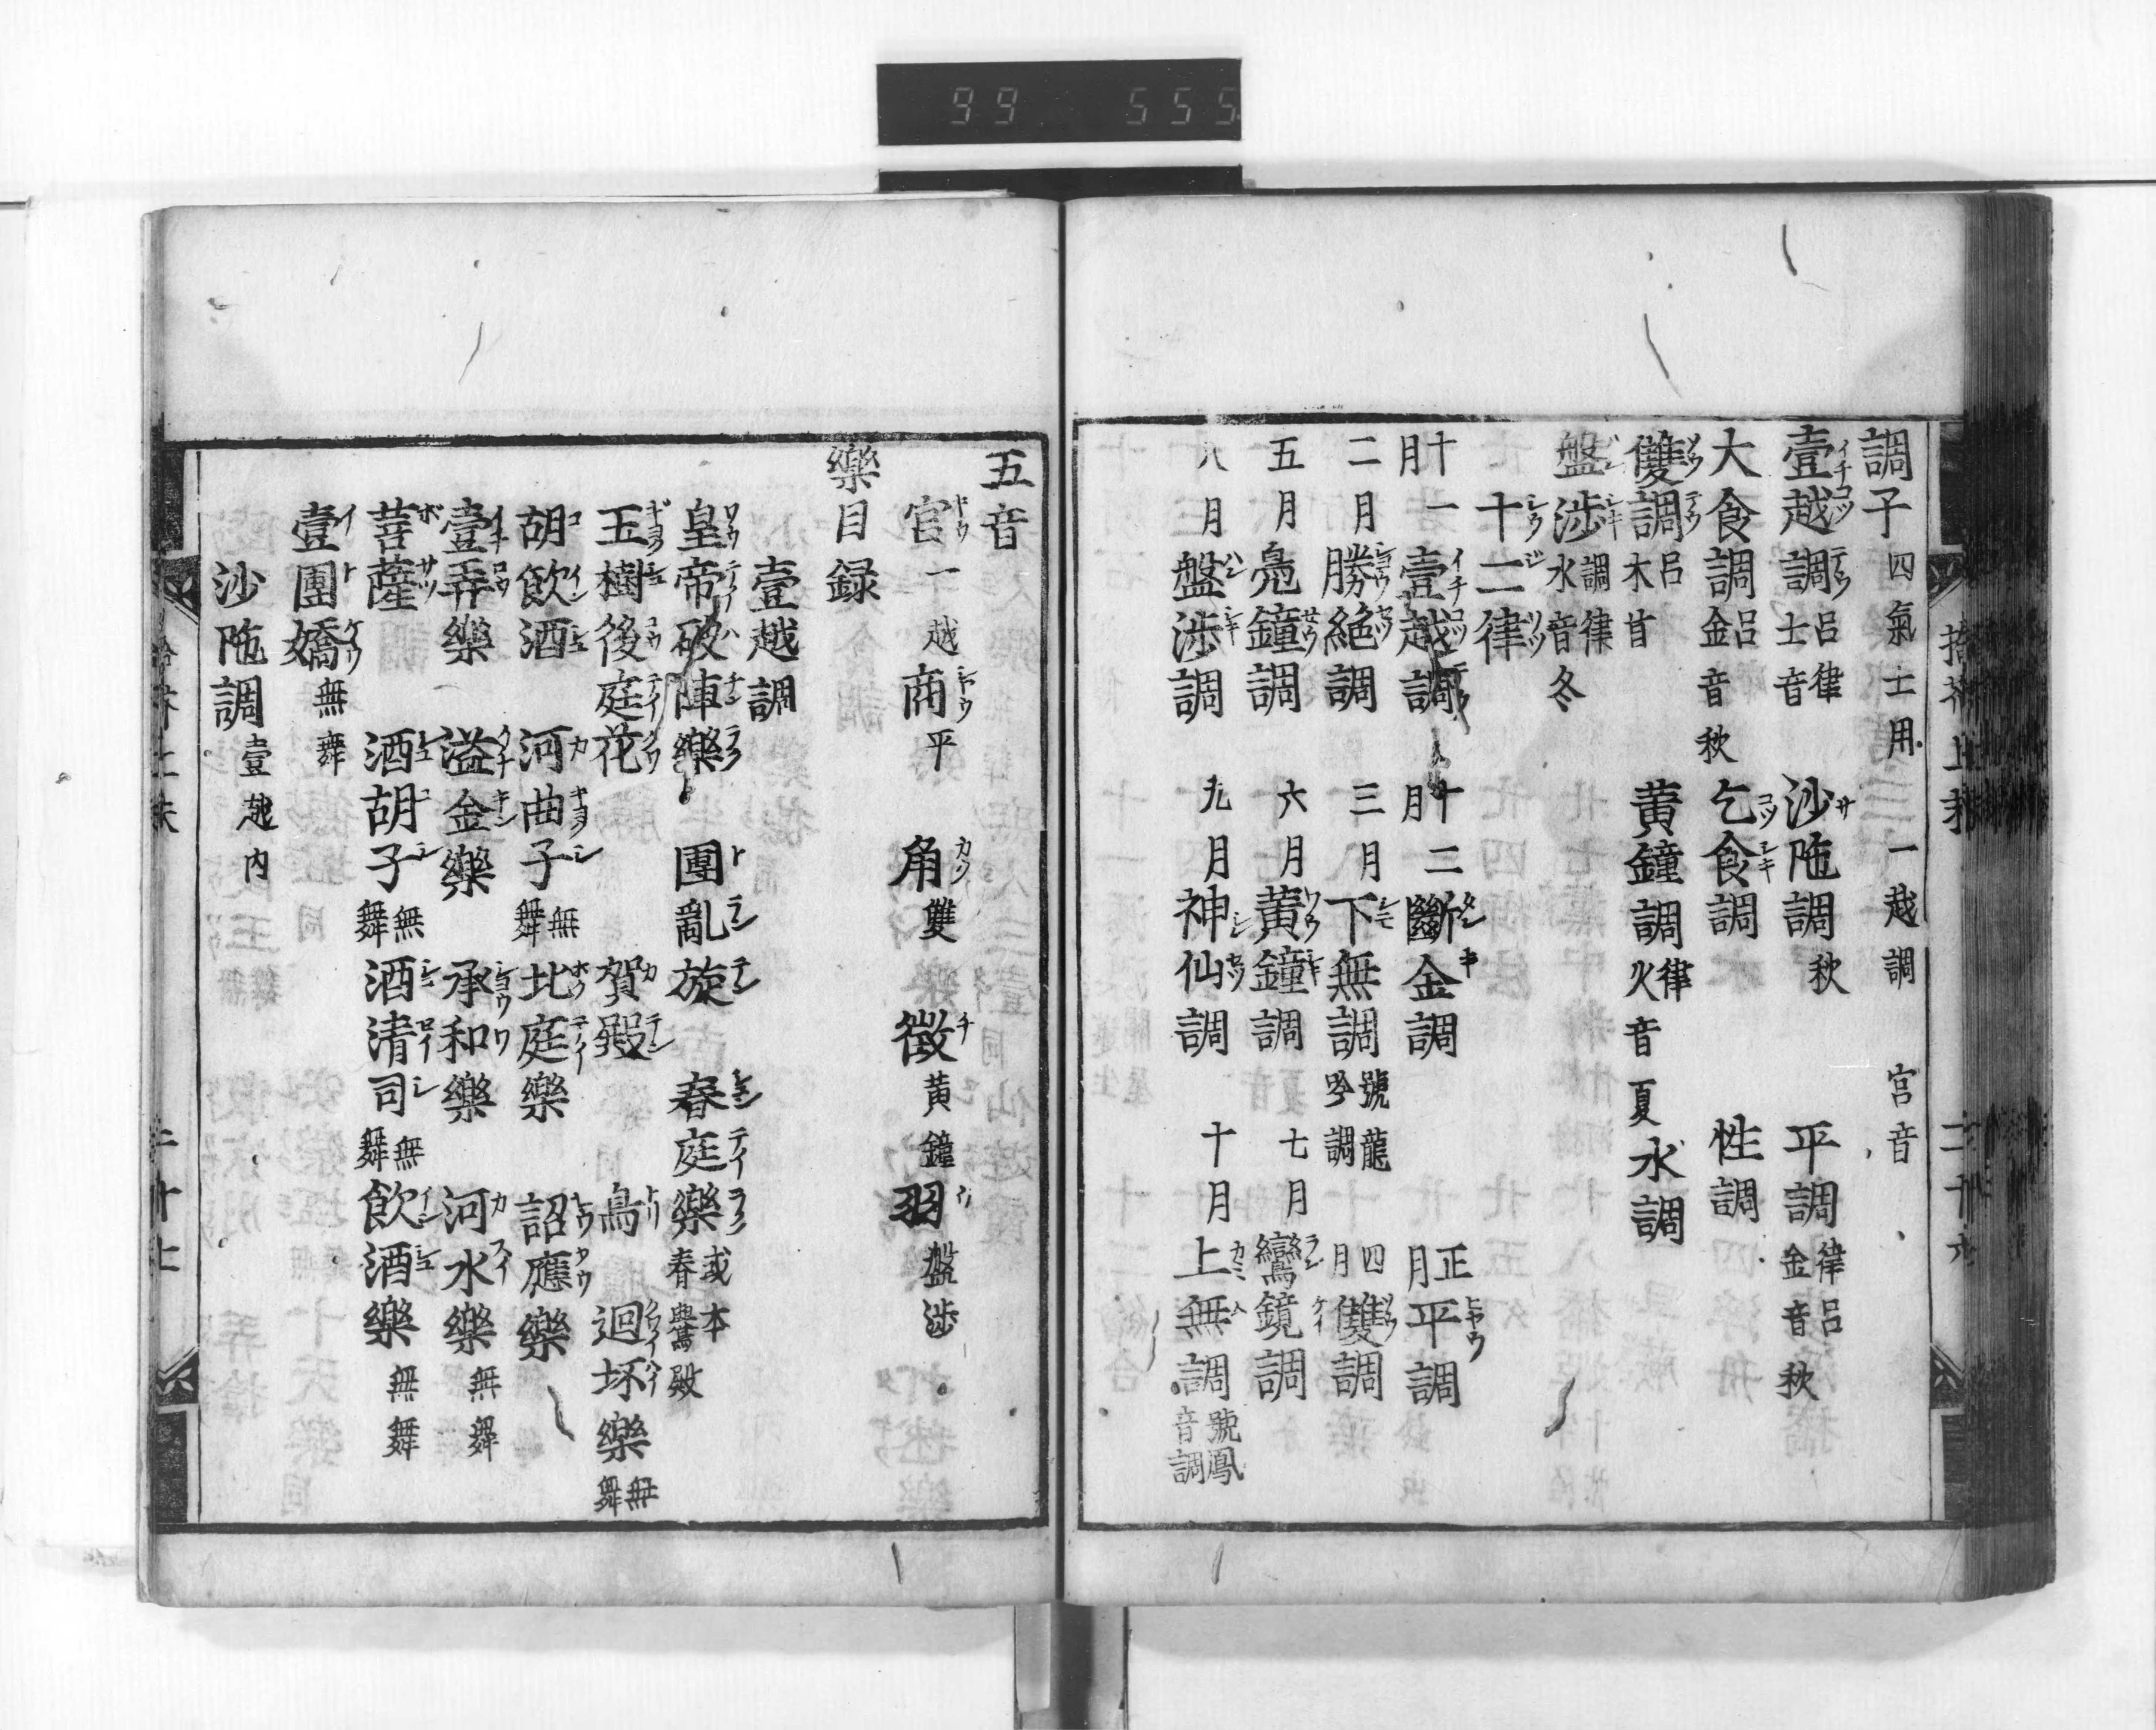 99 555
調子 四氣士用 一越調 宮音
壹越調 呂律士音 沙陁調 秋 平調 律呂金音 秋
大食調 呂金音 秋 乞食調 性調
雙調 呂木音 黄鐘調 律火音 夏 水調
盤渉調 律水音 冬
十二律
十一月 壹越調 十二月 斷金調 正月 平調
二月 勝絶調 三月 下無調 號龍吟調 四月 雙調
五月 鳧鐘調 六月 黄鐘調 七月 鸞鏡調
八月 盤渉調 九月 神仙調 十月 上無調 號鳳音調
二十六
五音
宮 一越 商 平 角 雙 徴 黄鐘 羽 盤渉
樂目録
壹越調
皇帝破陣樂 團亂旋 春庭樂 或本春鸎殿
玉樹後庭花 賀殿 鳥 迴坏樂 無舞
胡飲酒 河曲子 無舞 北庭樂 詔應樂
壹弄樂 溢金樂 承和樂 河水樂 無舞
菩薩 酒胡子 無舞 酒清司 無舞 飲酒樂 無舞
壹團嬌 無舞
沙陁調 壹越内
二十七